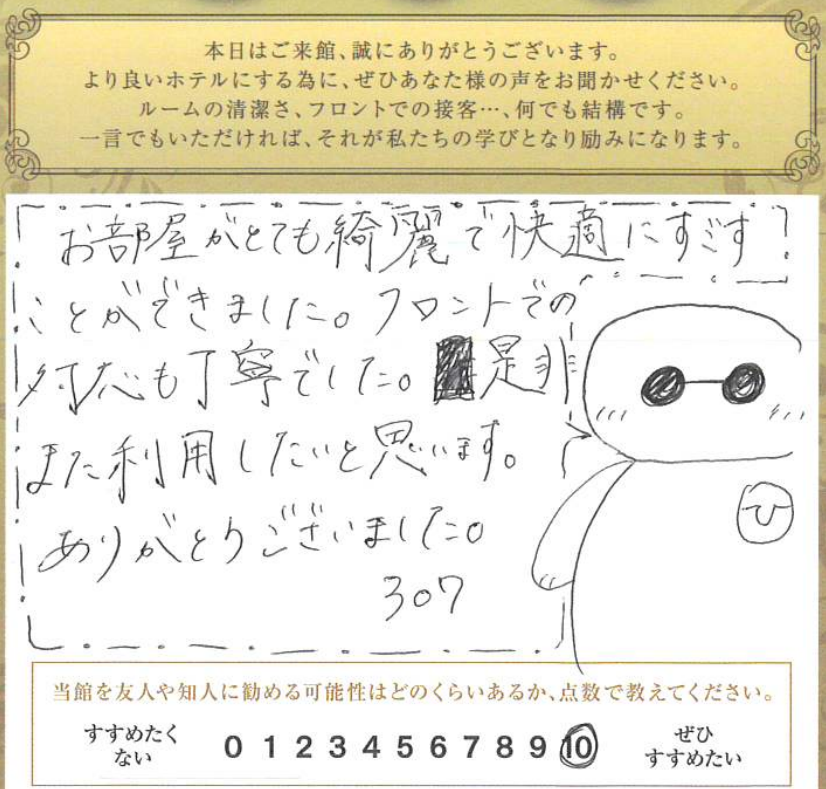 本日はご来館、誠にありがとうございます。
より良いホテルにする為に、ぜひあなた様の声をお聞かせください。
ルームの清潔さ、フロントでの接客…、何でも結構です。
一言でもいただければ、それが私たちの学びとなり励みになります。
お部屋がとても綺麗で快適にすごす
ことができました。フロントでの
対応も丁寧でした。是非
また利用したいと思います。
ありがとうございました。
307
ひ
当館を友人や知人に勧める可能性はどのくらいあるか、点数で教えてください。
すすめたく
ない
0 1 2 3 4 5 6 7 8 9 10
ぜひ
すすめたい